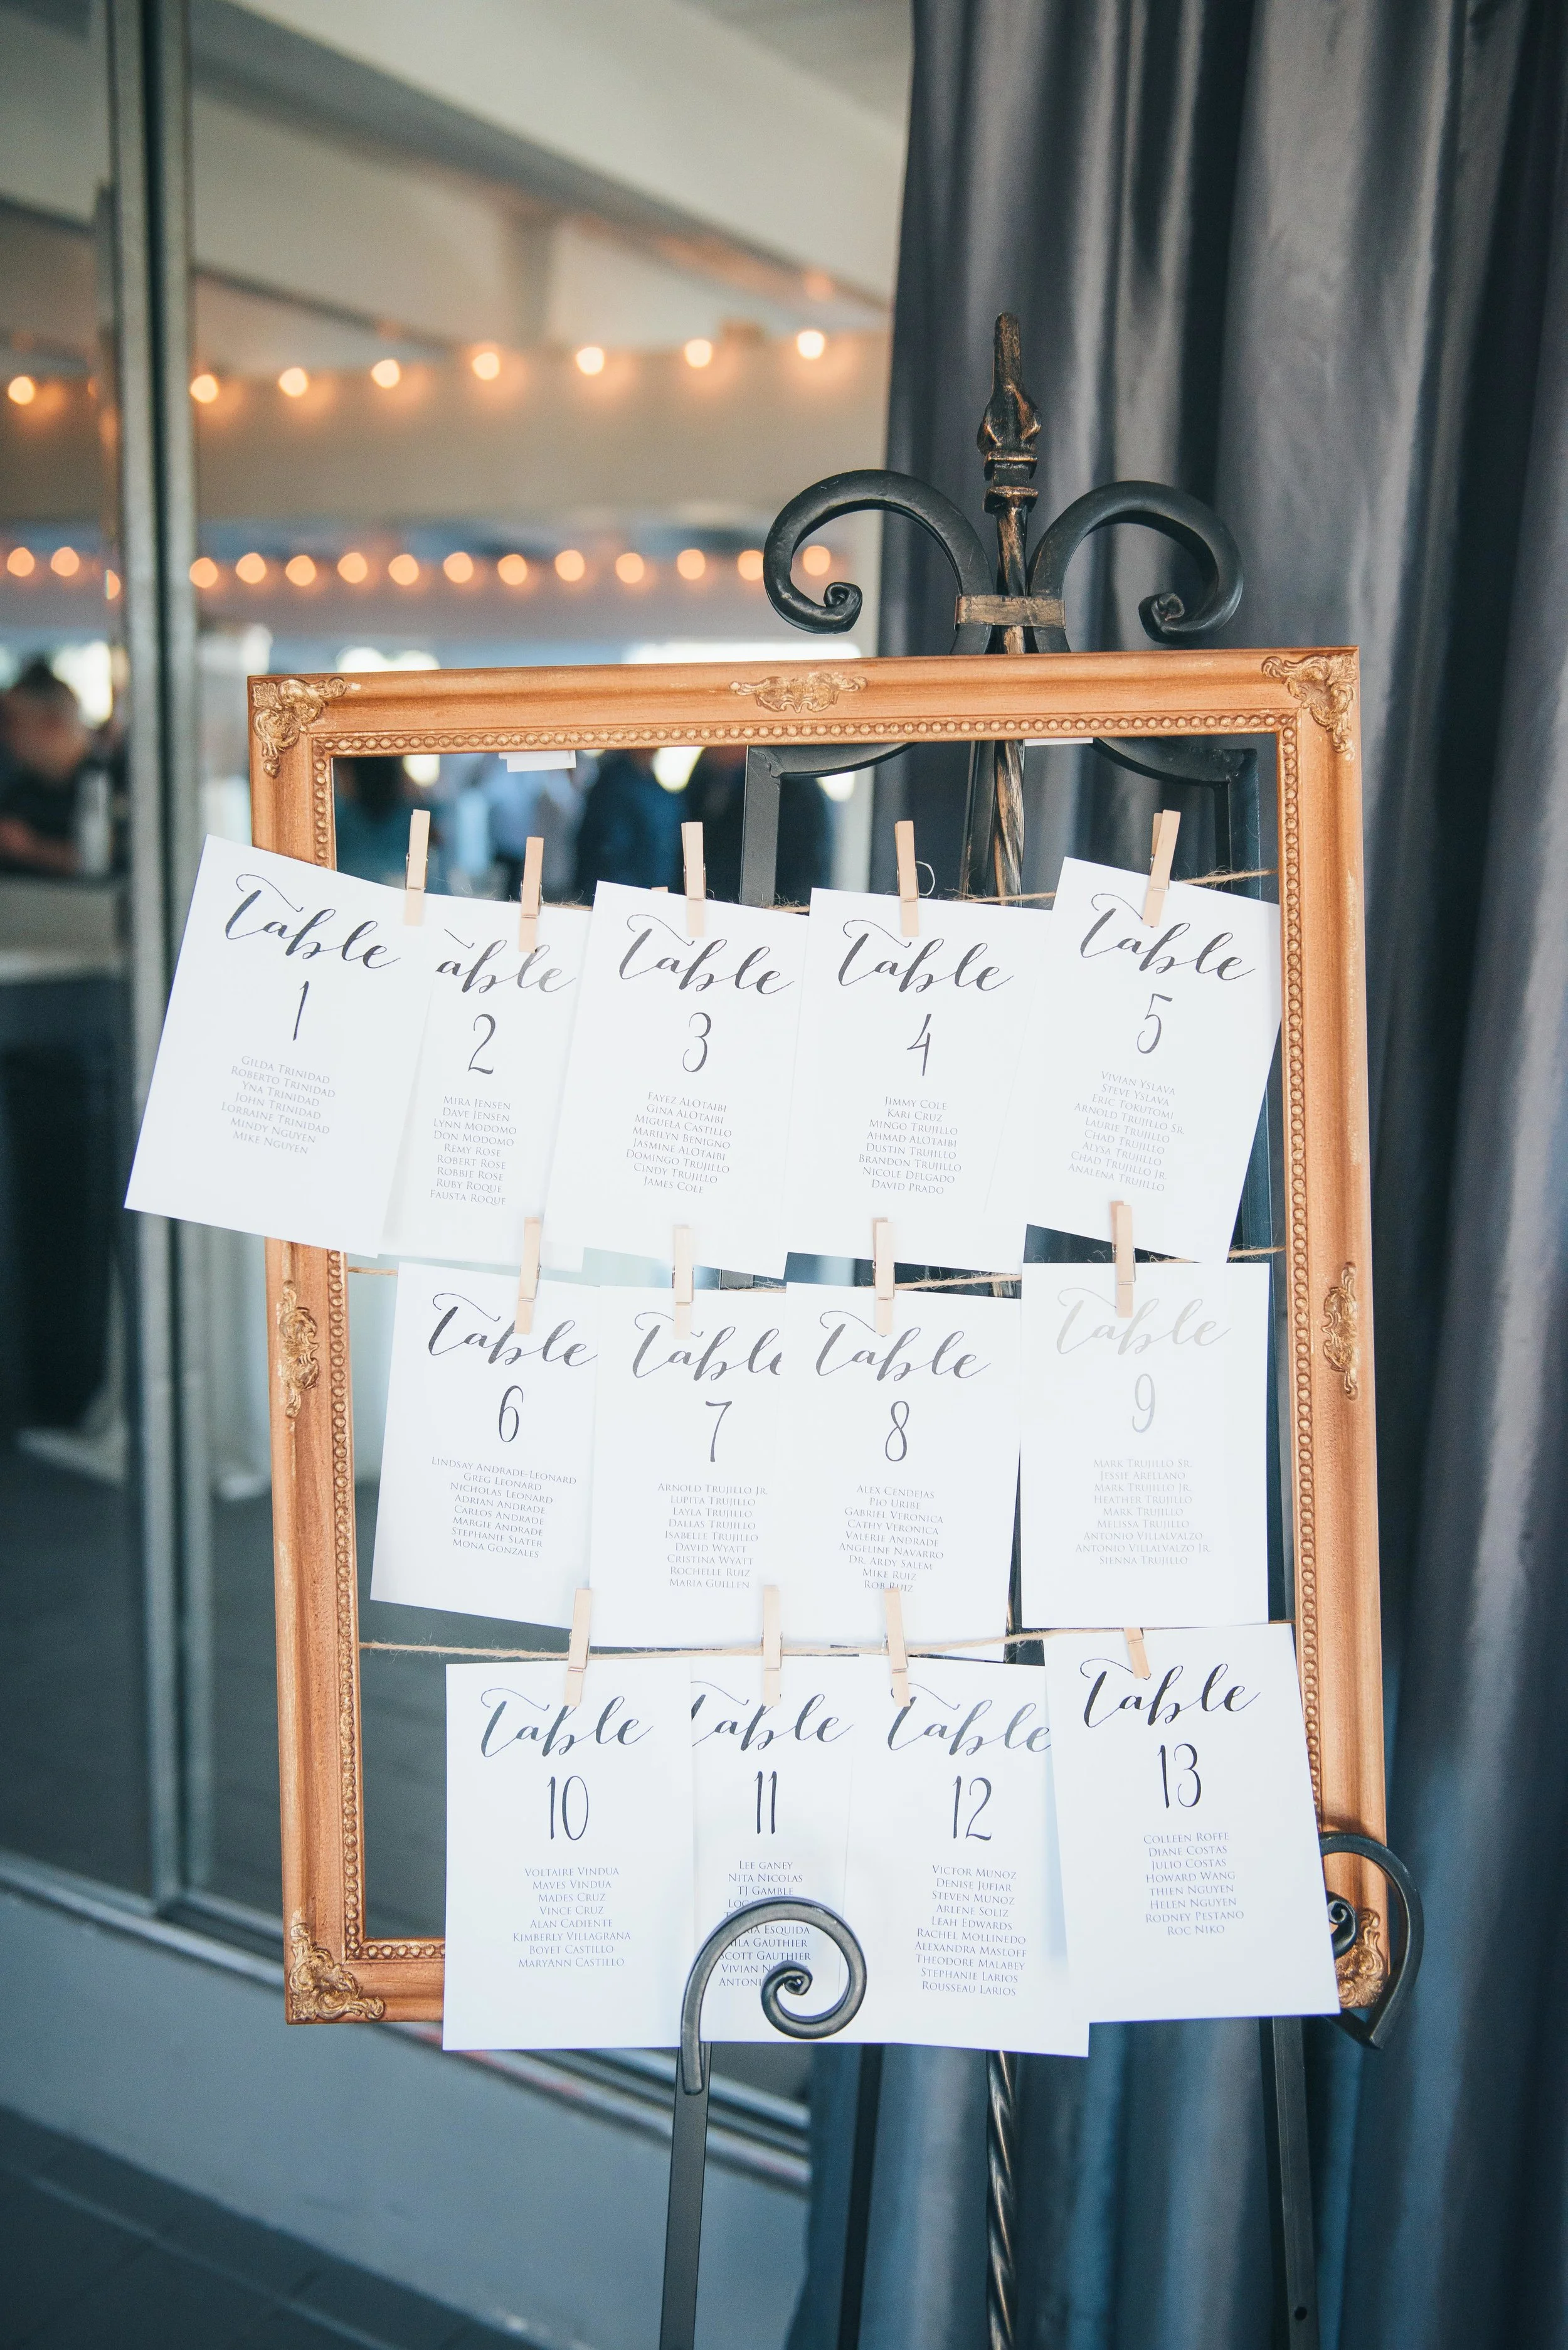 Table
1
GILDA TRINIDAD
ROBERTO TRINIDAD
YNA TRINIDAD
JOHN TRINIDAD
LORRAINE TRINIDAD
MINDY NGUYEN
MIKE NGUYEN
able
2
MIRA JENSEN
DAVE JENSEN
LYNN MODOMO
DON MODOMO
REMY ROSE
ROBERT ROSE
ROBBIE ROSE
RUBY ROQUE
FAUSTA ROQUE
Table
3
FAYEZ ALOTAIBI
GINA ALOTAIBI
MIGUELA CASTILLO
MARILYN BENIGNO
JASMINE ALOTAIBI
DOMINGO TRUJILLO
CINDY TRUJILLO
JAMES COLE
Table
4
JIMMY COLE
KARI CRUZ
MINGO TRUJILLO
AHMAD ALOTAIBI
DUSTIN TRUJILLO
BRANDON TRUJILLO
NICOLE DELGADO
DAVID PRADO
Table
5
VIVIAN YSLAVA
STEVE YSLAVA
ERIC TOKUTOMI
ARNOLD TRUJILLO SR.
LAURIE TRUJILLO
CHAD TRUJILLO
ALYSA TRUJILLO
CHAD TRUJILLO JR.
ANALENA TRUJILLO
Table
6
LINDSAY ANDRADE-LEONARD
GREG LEONARD
NICHOLAS LEONARD
ADRIAN ANDRADE
CARLOS ANDRADE
MARGIE ANDRADE
STEPHANIE SLATER
MONA GONZALES
Table
7
ARNOLD TRUJILLO JR.
LUPITA TRUJILLO
LAYLA TRUJILLO
DALLAS TRUJILLO
ISABELLE TRUJILLO
DAVID WYATT
CRISTINA WYATT
ROCHELLE RUIZ
MARIA GUILLEN
Table
8
ALEX CENDEJAS
PIO URIBE
GABRIEL VERONICA
CATHY VERONICA
VALERIE ANDRADE
ANGELINE NAVARRO
DR. ARDY SALEM
MIKE RUIZ
ROB RUIZ
Table
9
MARK TRUJILLO SR.
JESSIE ARELLANO
MARK TRUJILLO JR.
HEATHER TRUJILLO
MARK TRUJILLO
MELISSA TRUJILLO
ANTONIO VILLALVALZO
ANTONIO VILLALVALZO JR.
SIENNA TRUJILLO
Table
10
VOLTAIRE VINDUA
MAVES VINDUA
MADES CRUZ
VINCE CRUZ
ALAN CADIENTE
KIMBERLY VILLAGRANA
BOYET CASTILLO
MARYANN CASTILLO
Table
11
LEE GANEY
NITA NICOLAS
TJ GAMBLE
ESQUIDA
GAUTHIER
SCOTT GAUTHIER
VIVIAN
Table
12
VICTOR MUNOZ
DENISE JUFIAR
STEVEN MUNOZ
ARLENE SOLIZ
LEAH EDWARDS
RACHEL MOLLINEDO
ALEXANDRA MASLOFF
THEODORE MALABEY
STEPHANIE LARIOS
ROUSSEAU LARIOS
Table
13
COLLEEN ROFFE
DIANE COSTAS
JULIO COSTAS
HOWARD WANG
THIEN NGUYEN
HELEN NGUYEN
RODNEY PESTANO
ROC NIKO